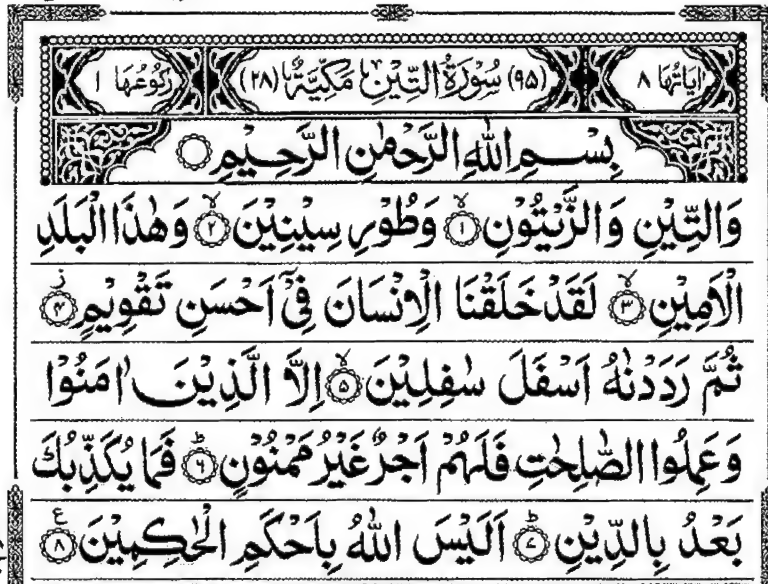 اٰيَاتُهَا ٨ (٩٥) سُوْرَةُ التِّيْنِ مَكِّيَّةٌ (٢٨) رُكُوْعُهَا ١
بِسْمِ اللّٰهِ الرَّحْمٰنِ الرَّحِيْمِ ۝
وَالتِّيْنِ وَالزَّيْتُوْنِ ۙ﴿١﴾ وَطُوْرِ سِيْنِيْنَ ۙ﴿٢﴾ وَهٰذَا الْبَلَدِ
الْاَمِيْنِ ۙ﴿٣﴾ لَقَدْ خَلَقْنَا الْاِنْسَانَ فِيْۤ اَحْسَنِ تَقْوِيْمٍ ؗ﴿٤﴾
ثُمَّ رَدَدْنٰهُ اَسْفَلَ سٰفِلِيْنَ ۙ﴿٥﴾ اِلَّا الَّذِيْنَ اٰمَنُوْا
وَعَمِلُوا الصّٰلِحٰتِ فَلَهُمْ اَجْرٌ غَيْرُ مَمْنُوْنٍ ؕ﴿٦﴾ فَمَا يُكَذِّبُكَ
بَعْدُ بِالدِّيْنِ ؕ﴿٧﴾ اَلَيْسَ اللّٰهُ بِاَحْكَمِ الْحٰكِمِيْنَ ﴿٨﴾ ع